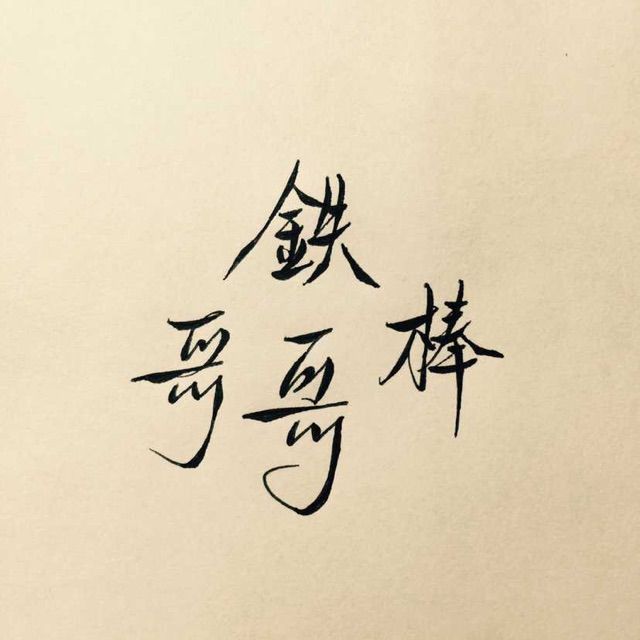 鉄棒哥哥